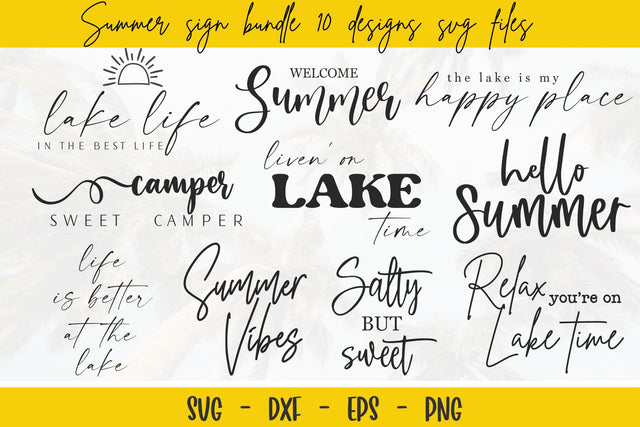 Summer sign bundle 10 designs svg files
lake life
IN THE BEST LIFE
WELCOME
Summer
the lake is my
happy place
camper
SWEET CAMPER
liven' on
LAKE
time
hello
Summer
life
is better
at the
lake
Summer
Vibes
Salty
BUT
sweet
Relax
you're on
Lake time
SVG - DXF - EPS - PNG